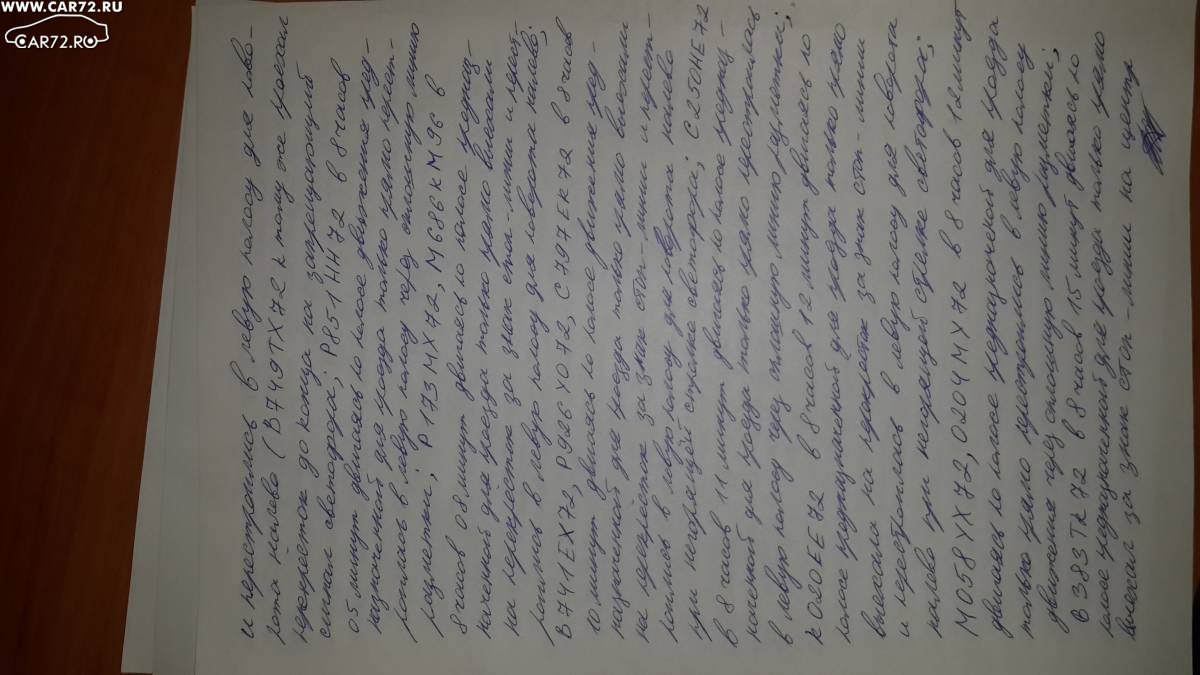 WWW.CAR72.RU
CAR72.RO
и перестроились в левую полосу для пово-
рота налево (В749ТХ72 к тому же проехал
перекресток до конца на запрещающий
сигнал светофора); Р851НН72 в 8 часов
05 минут двигаясь по полосе движения пред-
назначенной для проезда только прямо перест-
роилась в левую полосу через сплошную линию
разметки; Р173МХ72, М686КМ96 в
8 часов 08 минут двигаясь по полосе предназ-
наченной для проезда только прямо выехали
на перекресток за знак стоп-линии и перест-
роились в левую полосу для поворота налево;
В741ЕХ72, Р926УО72, С797ЕК72 в 8 часов
10 минут двигаясь по полосе движения пред-
назначенной для проезда только прямо выехали
на перекресток за знак стоп-линии и перест-
роились в левую полосу для поворота налево
при негорящей стрелке светофора; С250НЕ72
в 8 часов 11 минут двигаясь по полосе предназ-
наченной для проезда только прямо перестроилась
в левую полосу через сплошную линию разметки;
К020ЕЕ72 в 8 часов 12 минут двигаясь по
полосе предназначенной для проезда только прямо
выехала на перекресток за знак стоп-линии
и перестроилась в левую полосу для поворота
налево при негорящей стрелке светофора;
М058УХ72, О204МХ72 в 8 часов 12 минут
двигаясь по полосе предназначенной для проезда
только прямо перестроились в левую полосу
движения через сплошную линию разметки;
В383ТК72 в 8 часов 15 минут двигаясь по
полосе предназначенной для проезда только прямо
выехал за знак стоп-линии на центр